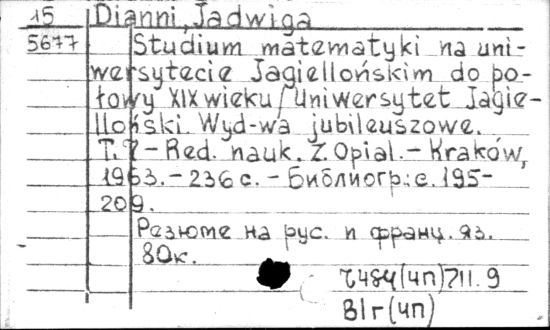 15 Dianni, Jadwiga
5677 Studium matematyki na uni-
wersytecie Jagiellońskim do po-
łowy XIX wieku/Uniwersytet Jagie-
lloński. Wyd-wa jubileuszowe.
T. 7 – Red. nauk. Z. Opial. – Kraków,
1963. – 236 с. – Библиогр.: с. 195–
209.
Резюме на рус. и франц. яз.
80к.
(чп)711.9
В1г(чп)